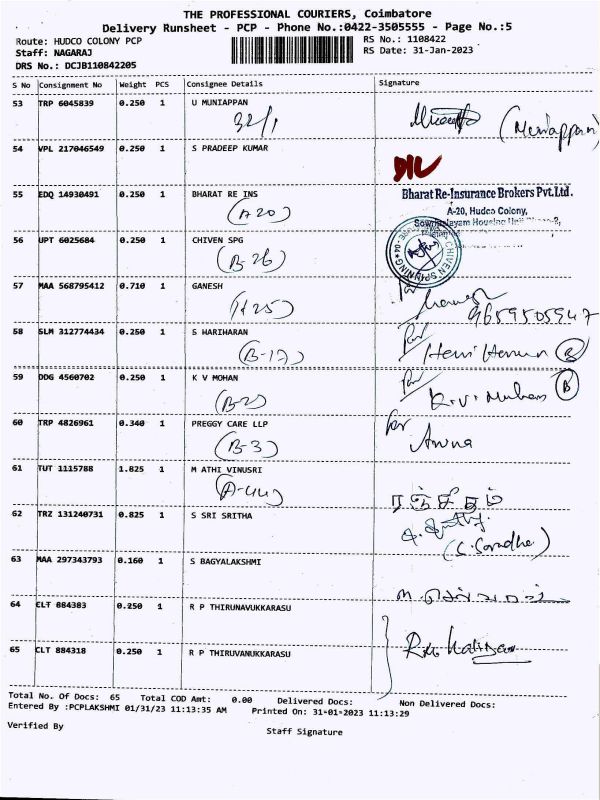 THE PROFESSIONAL COURIERS, Coimbatore
Delivery Runsheet - PCP - Phone No.:0422-3505555 - Page No.:5
Route: HUDCO COLONY PCP
RS No.: 1108422
Staff: NAGARAJ
RS Date: 31-Jan-2023
DRS No.: DCJB110842205
S No Consignment No Weight PCS Consignee Details Signature
53 TRP 6045839 0.250 1 U MUNIAPPAN
32/1 (Muniappan)
54 VPL 217046549 0.250 1 S PRADEEP KUMAR
D/L
55 EDQ 14930491 0.250 1 BHARAT RE INS Bharat Re-Insurance Brokers Pvt.Ltd.
(A20) A-20, Hudco Colony,
56 UPT 6025684 0.250 1 CHIVEN SPG
(B-26) CHIVEN SPINNING
57 MAA 568795412 0.710 1 GANESH
9659505947
58 SLM 312774434 0.250 1 S HARIHARAN
(B-17)
59 DDG 4560702 0.250 1 K V MOHAN
60 TRP 4826961 0.340 1 PREGGY CARE LLP
(B-3) for Aruna
61 TUT 1115788 1.825 1 M ATHI VINUSRI
(A-44) ரஞ்சிதம்
62 TRZ 131240731 0.825 1 S SRI SRITHA
63 MAA 297343793 0.160 1 S BAGYALAKSHMI
64 CLT 884383 0.250 1 R P THIRUNAVUKKARASU
65 CLT 884318 0.250 1 R P THIRUVANUKKARASU
Total No. Of Docs: 65 Total COD Amt: 0.00 Delivered Docs: Non Delivered Docs:
Entered By :PCPLAKSHMI 01/31/23 11:13:35 AM Printed On: 31-01-2023 11:13:29
Verified By
Staff Signature